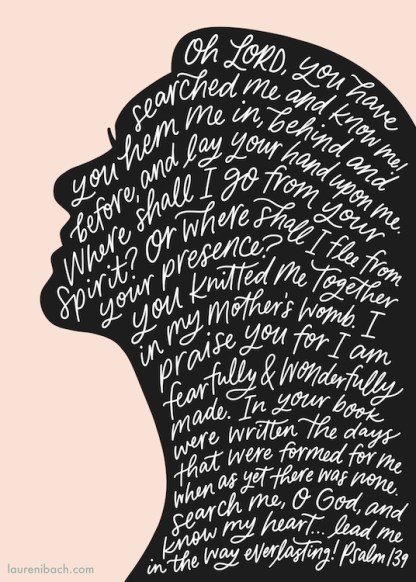 Oh LORD, you have
searched me and know me!
you hem me in, behind and
before, and lay your hand upon me.
Where shall I go from your
Spirit? Or where shall I flee from
your presence?
you knitted me together
in my mother's womb. I
praise you for I am
fearfully & wonderfully
made. In your book
were written the days
that were formed for me
when as yet there was none.
search me, O God, and
know my heart... lead me
in the way everlasting! Psalm 139
laurenibach.com